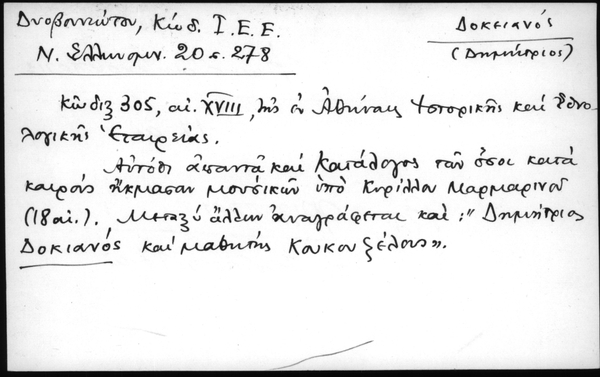 Δυοβουνιώτου, Κώδ. Ι.Ε.Ε.
Ν. Ἑλληνομν. 20 σ. 278
Δοκειανός
(Δημήτριος)
Κῶδιξ 305, αἰ. XVIII, τῆς ἐν Ἀθήναις Ἱστορικῆς καὶ Ἐθνο-
λογικῆς Ἑταιρείας.
Αὐτόθι ἀπαντᾷ καὶ Κατάλογος τῶν ὅσοι κατὰ
καιροὺς ἤκμασαν μουσικῶν ὑπὸ Κυρίλλου Μαρμαρινοῦ
(18 αἰ.). Μεταξὺ ἄλλων ἀναγράφεται καὶ: "Δημήτριος
Δοκιανός καὶ μαθητής Κουκουζέλους".